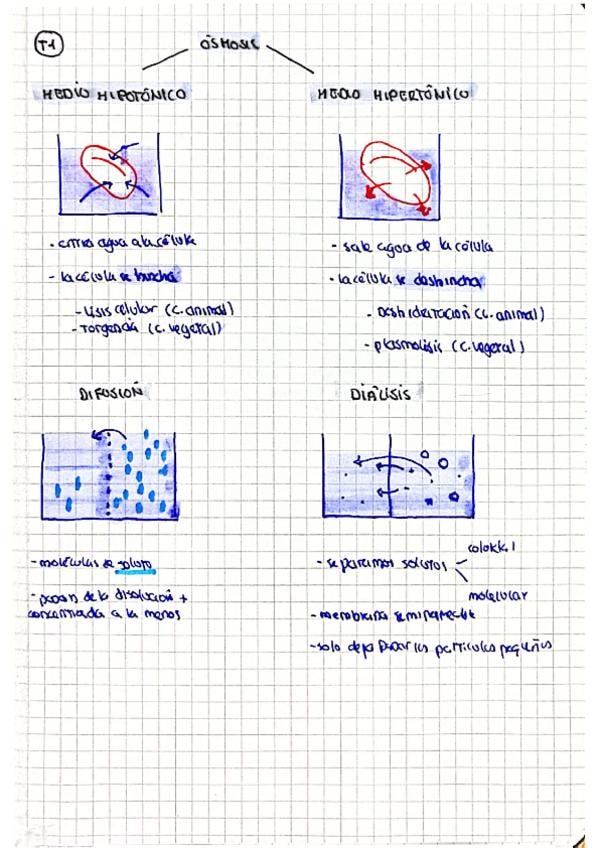 T1
ÓSMOSIS
MEDIO HIPOTÓNICO
MEDIO HIPERTÓNICO
- entra agua a la célula
- la célula se hincha
- Lisis celular (c. animal)
- Torgencia (c. vegetal)
- sale agua de la célula
- la célula se deshincha
- Deshidratación (c. animal)
- plasmolisis (c. vegetal)
DIFUSIÓN
DIÁLISIS
- moléculas de soluto
- pasan de la disolución +
concentrada a la menos
- separamos solutos
coloidal
molecular
- membrana semipermeable
- solo deja pasar las partículas pequeñas